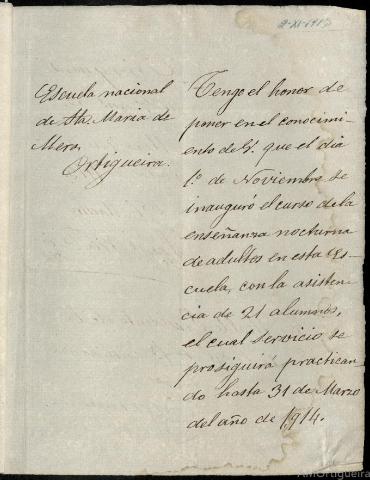 8-XI-1913
Escuela nacional
de Sta. Maria de
Mera,
Ortigueira.
Tengo el honor de
poner en el conocimi-
ento de V. que el dia
1.º de Noviembre se
inauguró el curso de la
enseñanza nocturna
de adultos en esta Es-
cuela, con la asisten-
cia de 21 alumnos,
el cual servicio se
prosiguirá practican-
do hasta 31 de Marzo
del año de 1914.
AMOrtigueira